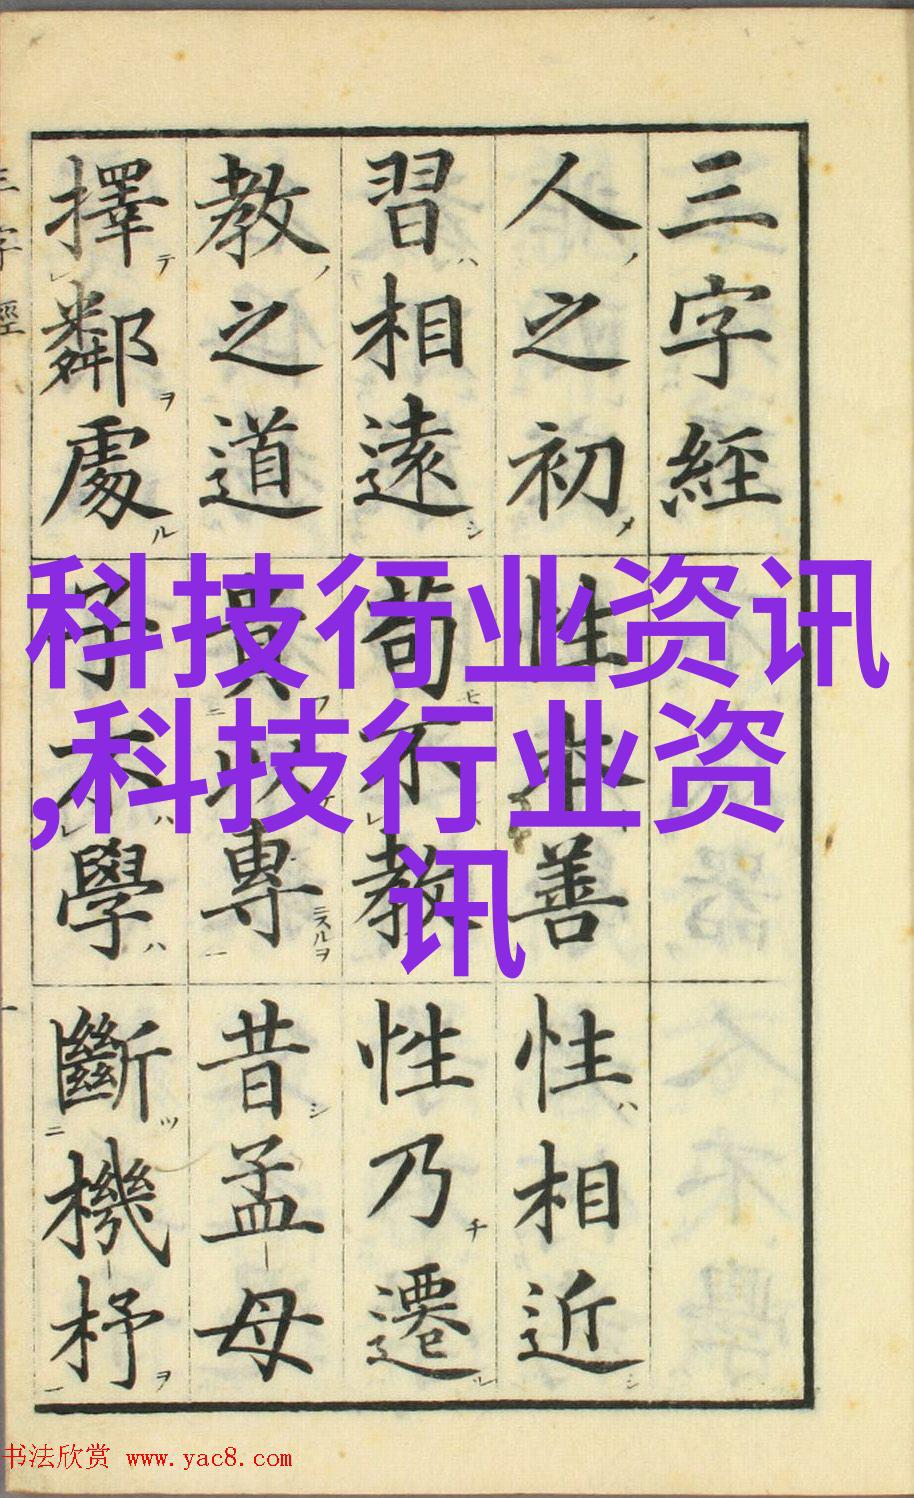 三字經
人之初
性
善
性相近
習相遠
荀不教
性乃遷
教之道
貴
專
昔孟母
擇鄰處
子不學
斷機杼
科技行业资讯
,科技行业资
讯
书法欣赏 www.yac8.com